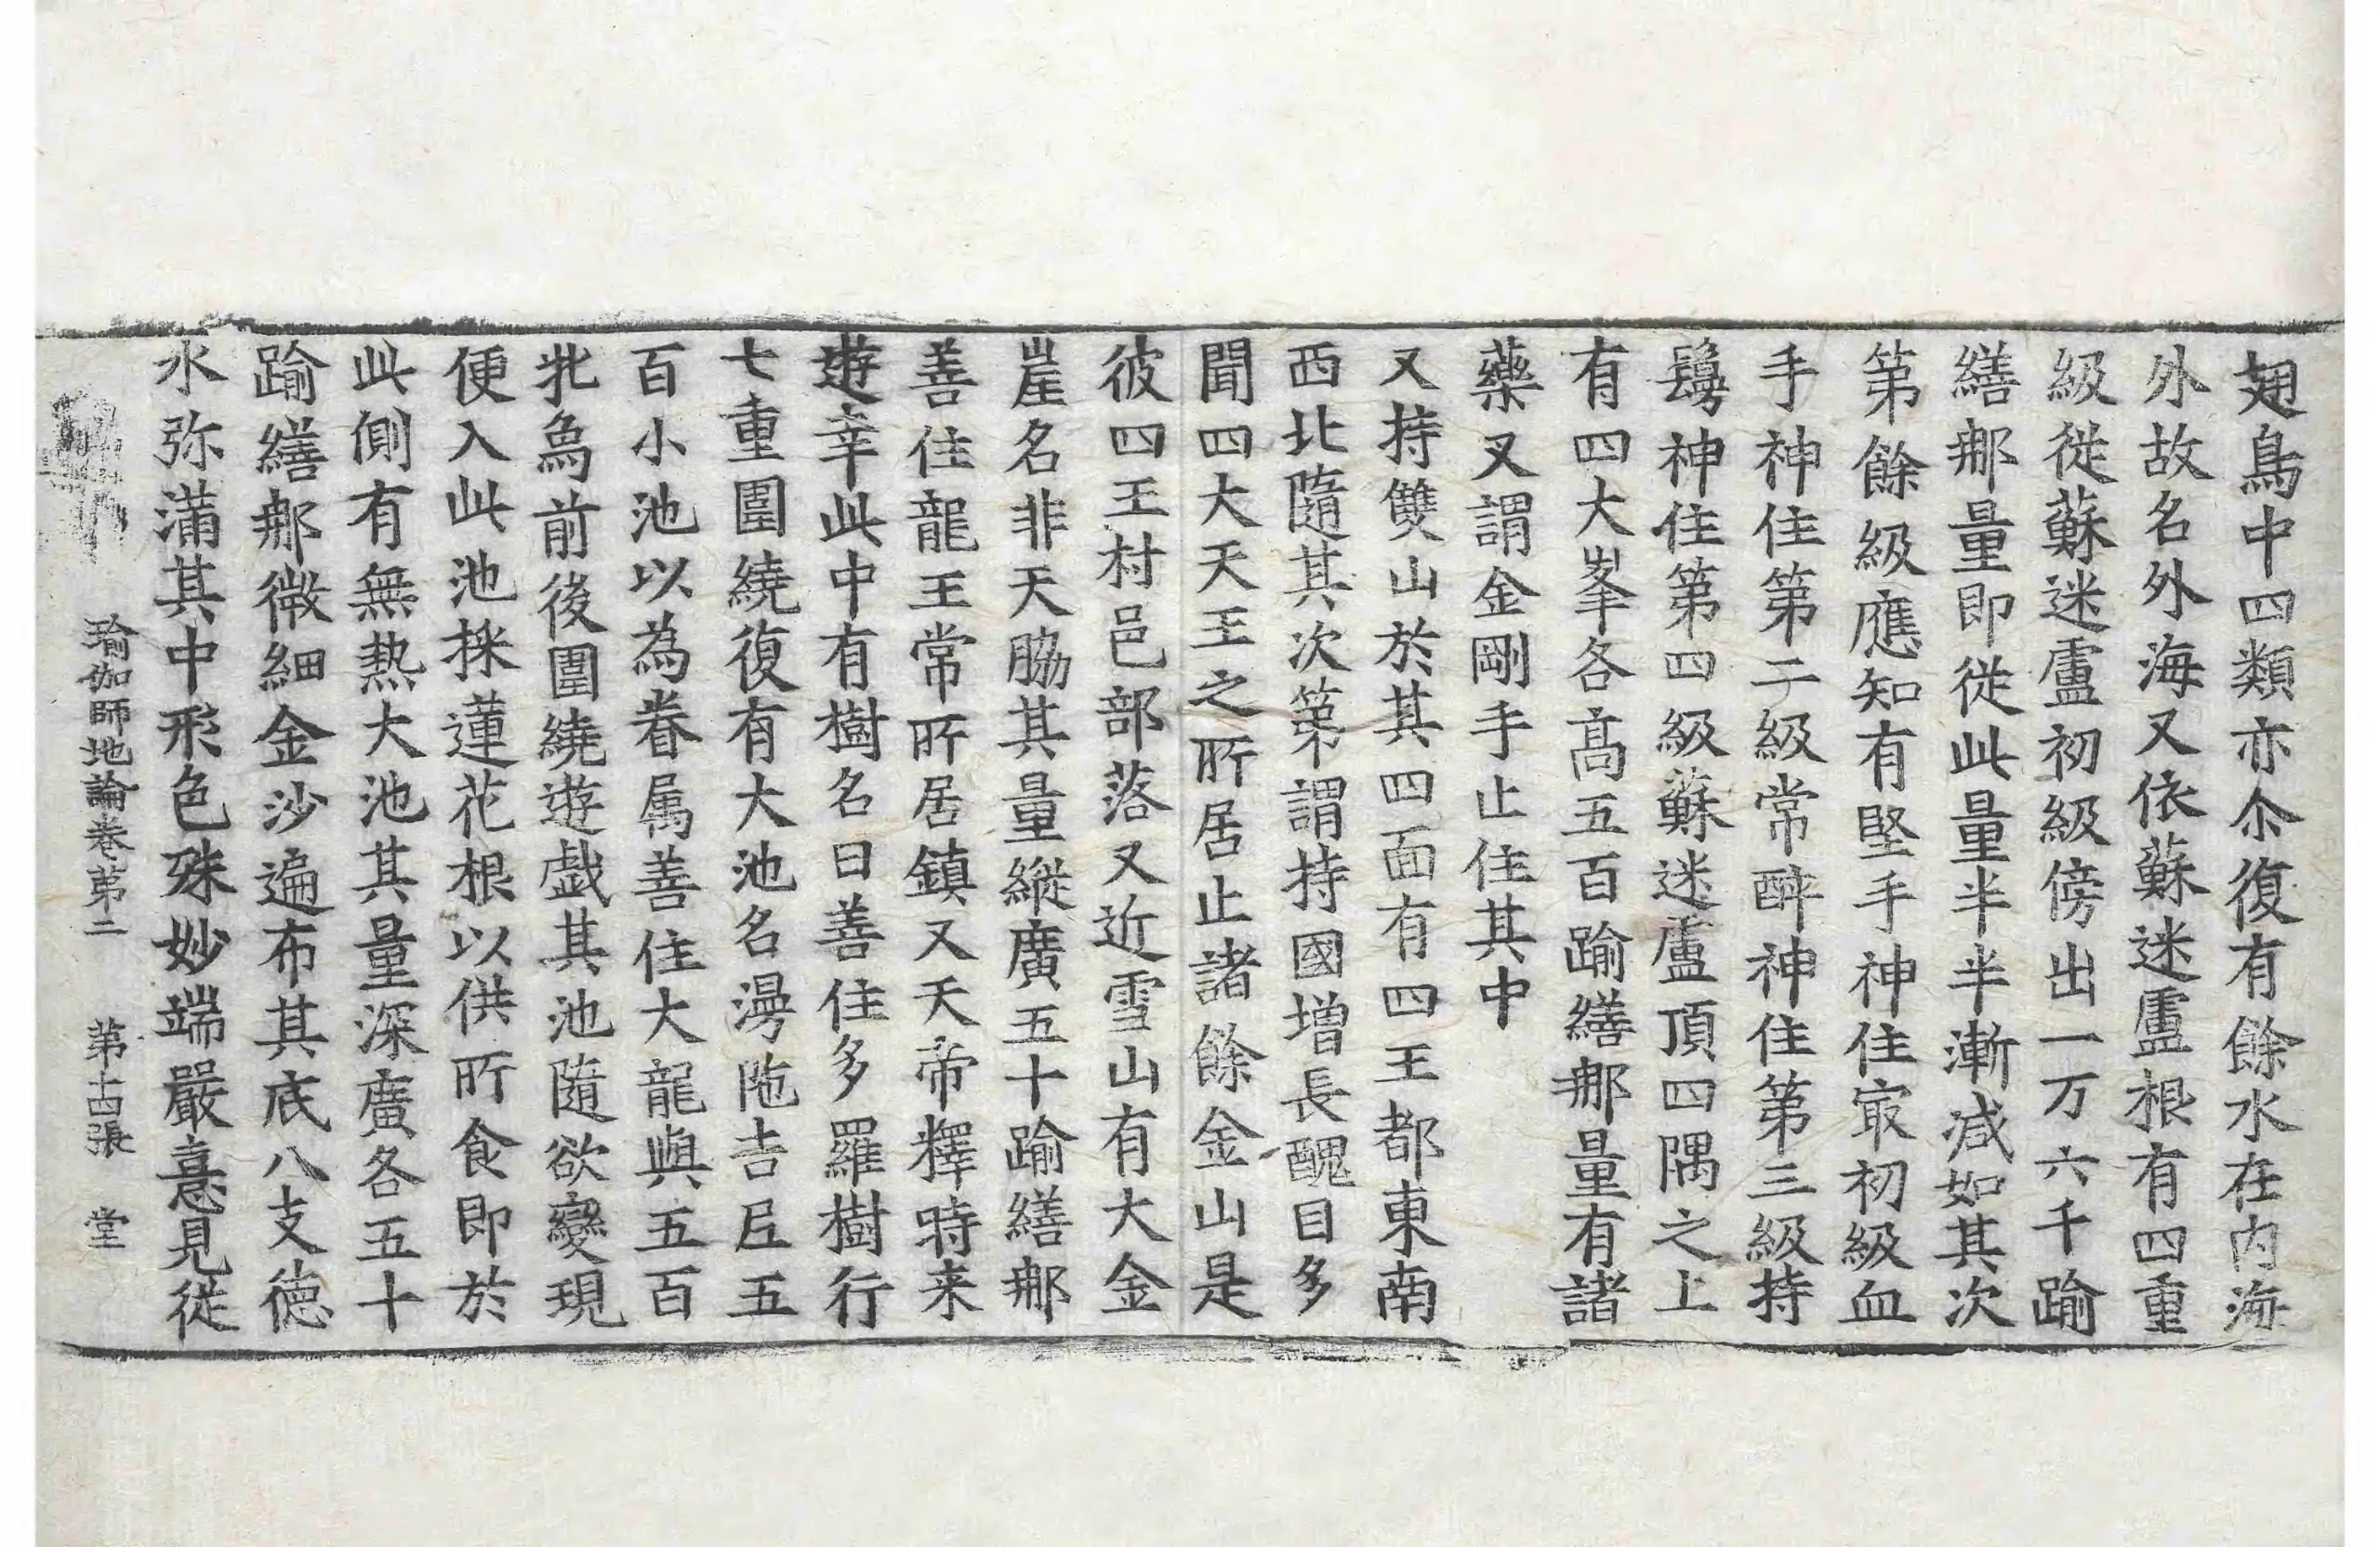 翅鳥中四類亦尒復有餘水在内海
外故名外海又依蘇迷盧根有四重
級從蘇迷盧初級傍出一万六千踰
繕那量即從此量半半漸減如其次
第餘級應知有堅手神住㝡初級血
手神住第二級常醉神住第三級持
鬘神住第四級蘇迷盧頂四隅之上
有四大峯各高五百踰繕那量有諸
藥叉謂金剛手止住其中
又持雙山於其四面有四王都東南
西北隨其次第謂持國增長醜目多
聞四大天王之所居止諸餘金山是
彼四王村邑部落又近雪山有大金
崖名非天脇其量縱廣五十踰繕那
善住龍王常所居鎮又天帝釋時来
遊幸此中有樹名曰善住多羅樹行
七重圍繞復有大池名漫陁吉尼五
百小池以為眷属善住大龍與五百
牝象前後圍繞遊戱其池隨欲變現
便入此池採蓮花根以供所食即於
此側有無熱大池其量深廣各五十
踰繕那微細金沙遍布其底八支德
水弥滿其中形色殊妙端嚴憙見從
瑜伽師地論卷第二 第十四張 堂